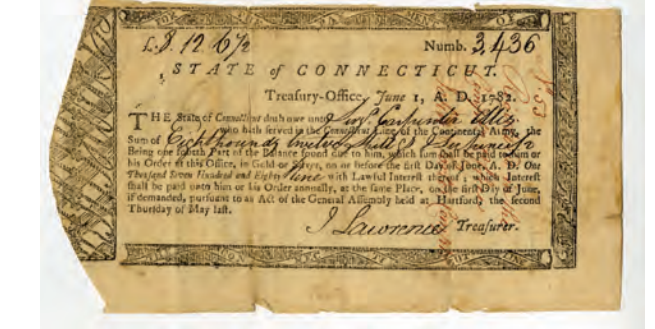 £.8. 12. 6 1/2 Numb. 3,436
STATE of CONNECTICUT.
Treasury-Office, June 1, A. D. 1782.
THE State of Connecticut doth owe unto
who hath served in the Connecticut Line of the Continental Army, the
Sum of Eight pounds twelve Shillgs & Six pence 1/2
Being one fourth Part of the Balance found due to him, which sum shall be paid to him or
his Order at this Office, in Gold or Silver, on or before the first Day of June, A. D. One
Thousand Seven Hundred and Eighty Nine with Lawful Interest thereof; which Interest
shall be paid unto him or his Order annually, at the same Place, on the first Day of June,
if demanded, pursuant to an Act of the General Assembly held at Hartford, the second
Thursday of May last.
J Lawrence Treasurer.